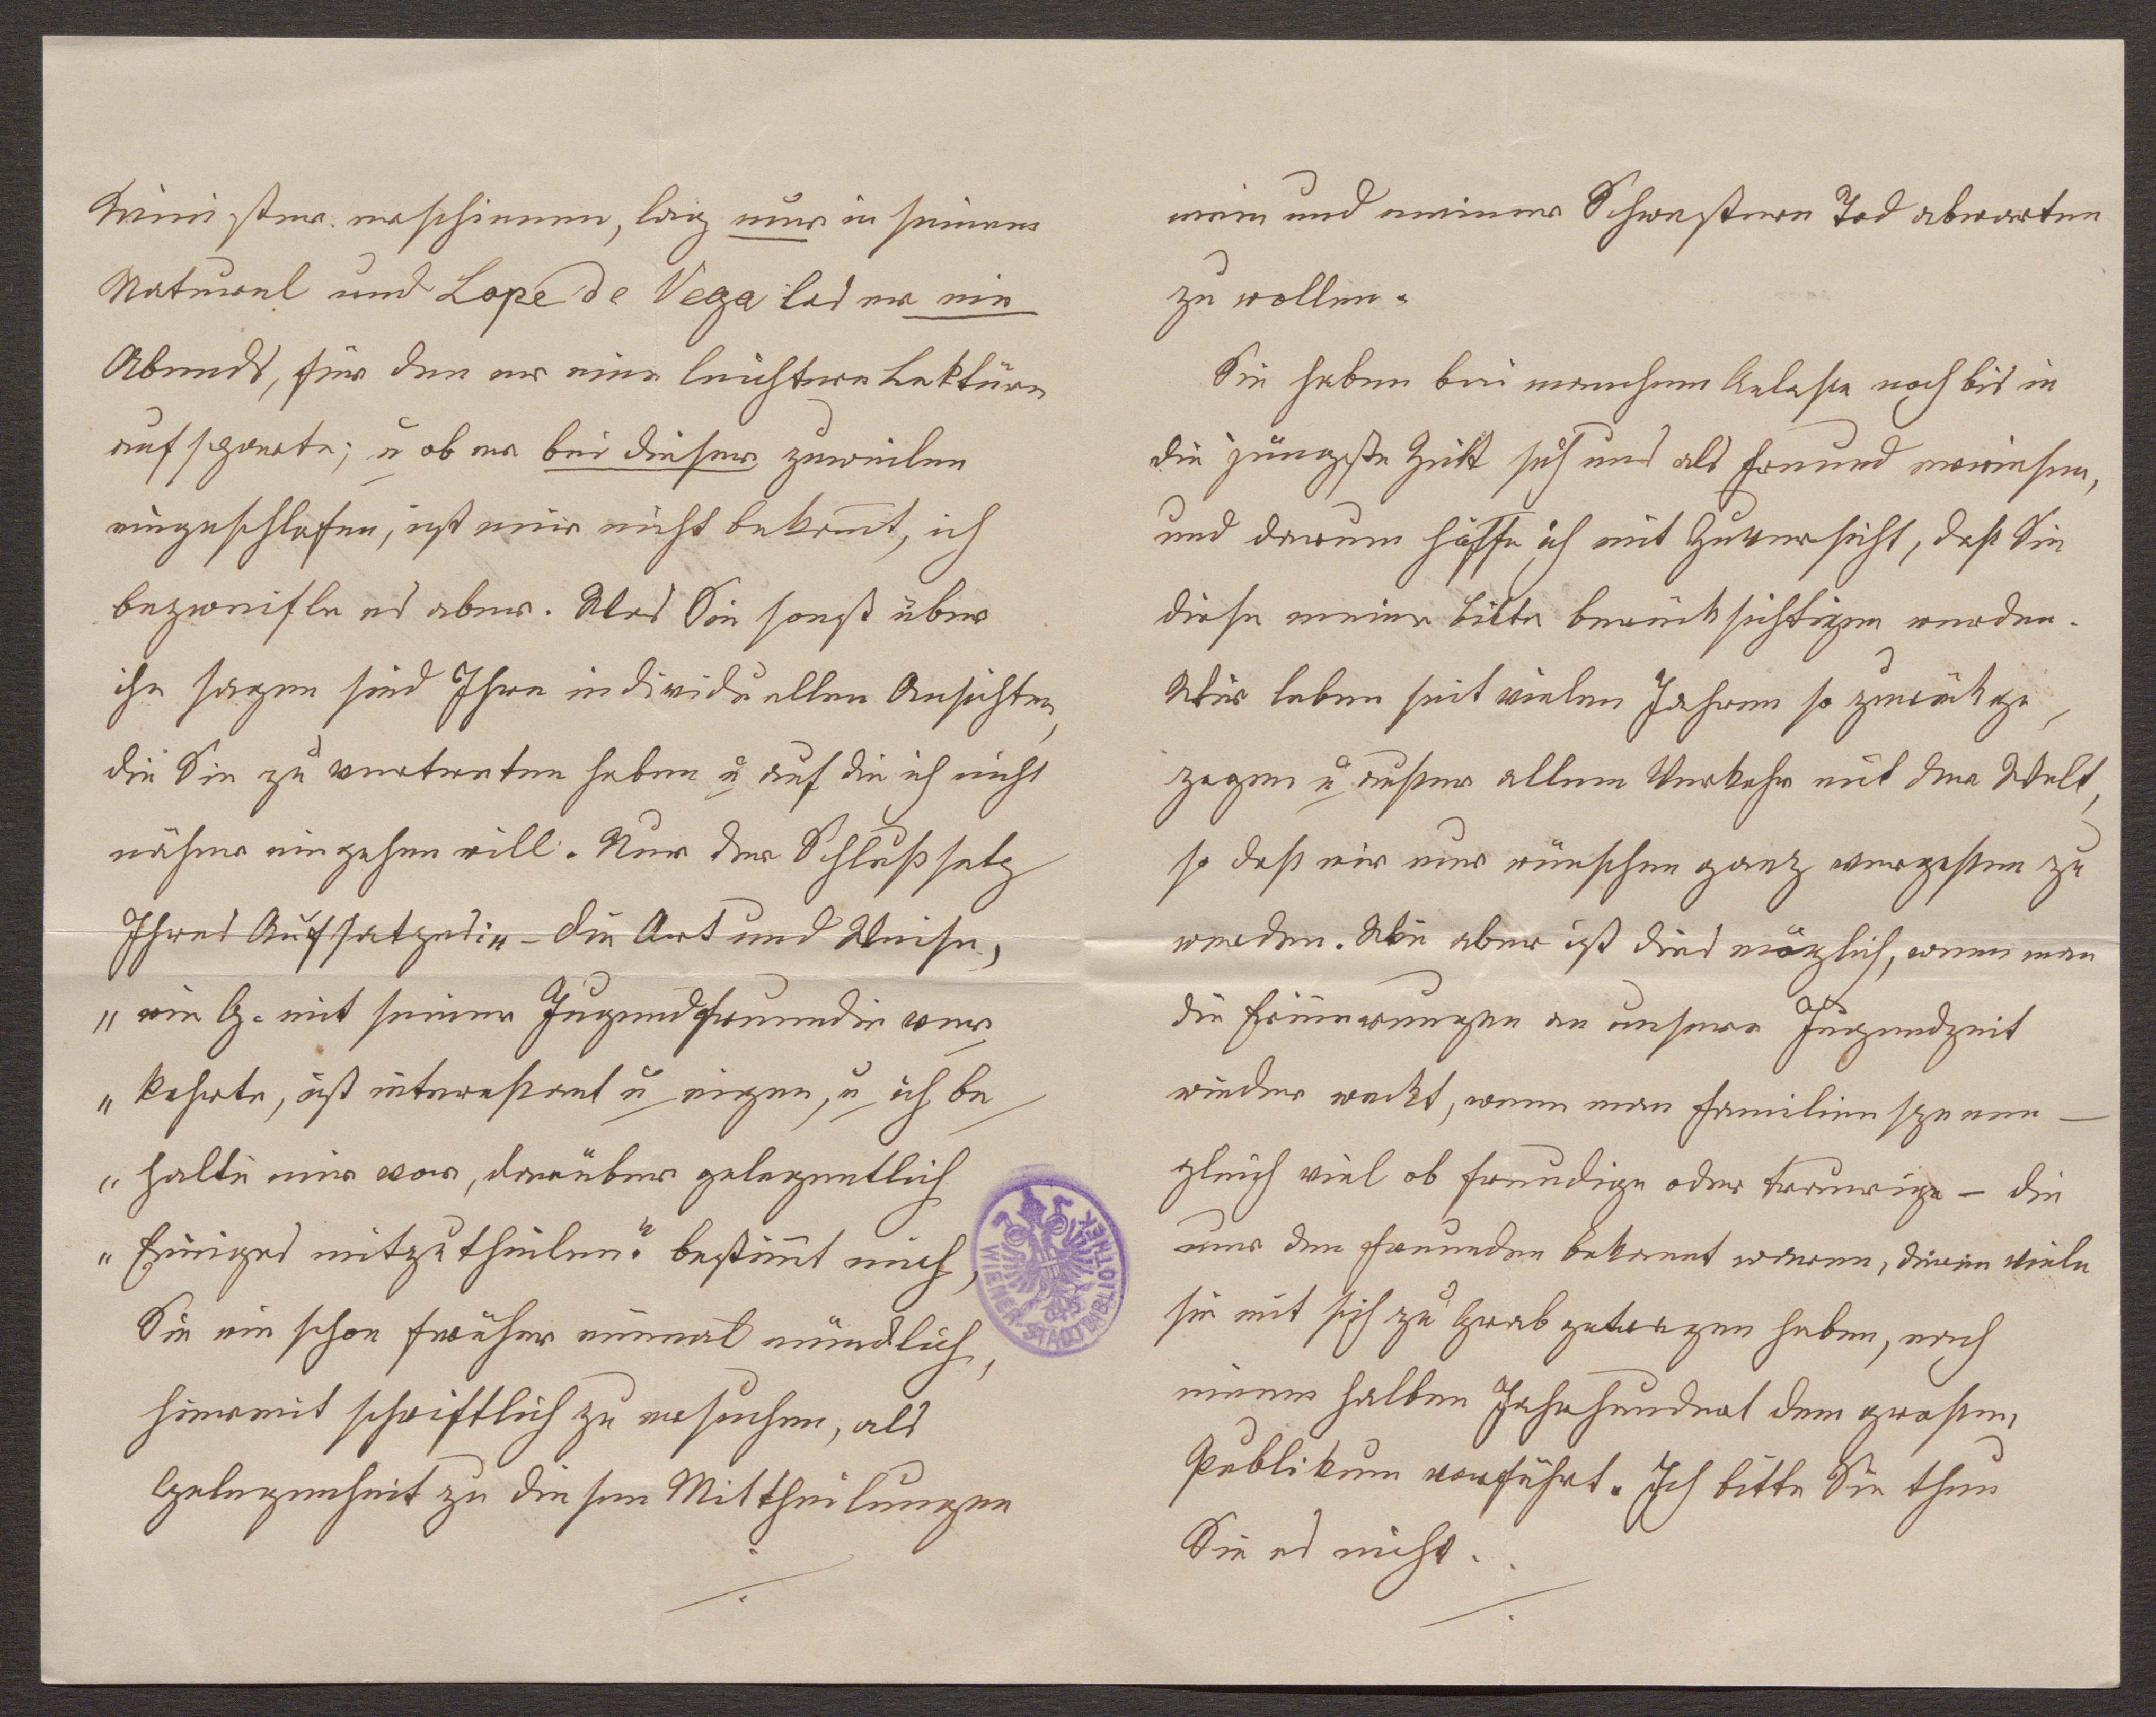 Minister erschienen, lag nur in seinem
Naturel und Lope de Vega las er nie
Abends, für den er eine leichtere Lektüre
aufsparte; u ob er bei dieser zuweilen
eingeschlafen, ist mir nicht bekannt, ich
bezweifle es aber. Was Sie sonst über
ihn sagen sind Ihre individuellen Ansichten,
die Sie zu vertreten haben u auf die ich nicht
näher eingehen will. Nur der Schlußsatz
Ihres Aufsatzes: „ – die Art und Weise,
„ wie G. mit seiner Jugendfreundin ver
„ kehrte, ist interessant u eigen, u ich be
„ halte mir vor, darüber gelegentlich
„ Einiges mitzutheilen." bestimmt mich,
Sie wie schon früher einmal mündlich,
hiermit schriftlich zu ersuchen, als
Gelegenheit zu diesen Mittheilungen
./.
mein und meiner Schwestern Tod abwarten
zu wollen.
Sie haben bei manchem Anlasse noch bis in
die jüngste Zeit sich uns als Freund erwiesen,
und darum hoffe ich mit Zuversicht, daß Sie
diese meine Bitte berücksichtigen werden.
Wir leben seit vielen Jahren so zurückge
zogen u außer allem Verkehr mit der Welt,
so daß wir nur wünschen ganz vergessen zu
werden. Wie aber ist dies möglich, wenn man
die Erinnerungen an unsere Jugendzeit
wieder weckt, wenn man Familienszenen –
gleich viel ob freudige oder traurige – die
nur den Freunden bekannt waren, deren viele
sie mit sich zu Grab getragen haben, nach
einem halben Jahrhundert dem großen
Publikum vorführt. Ich bitte Sie thun
Sie es nicht.
./.
WIENER STADTBIBLIOTHEK